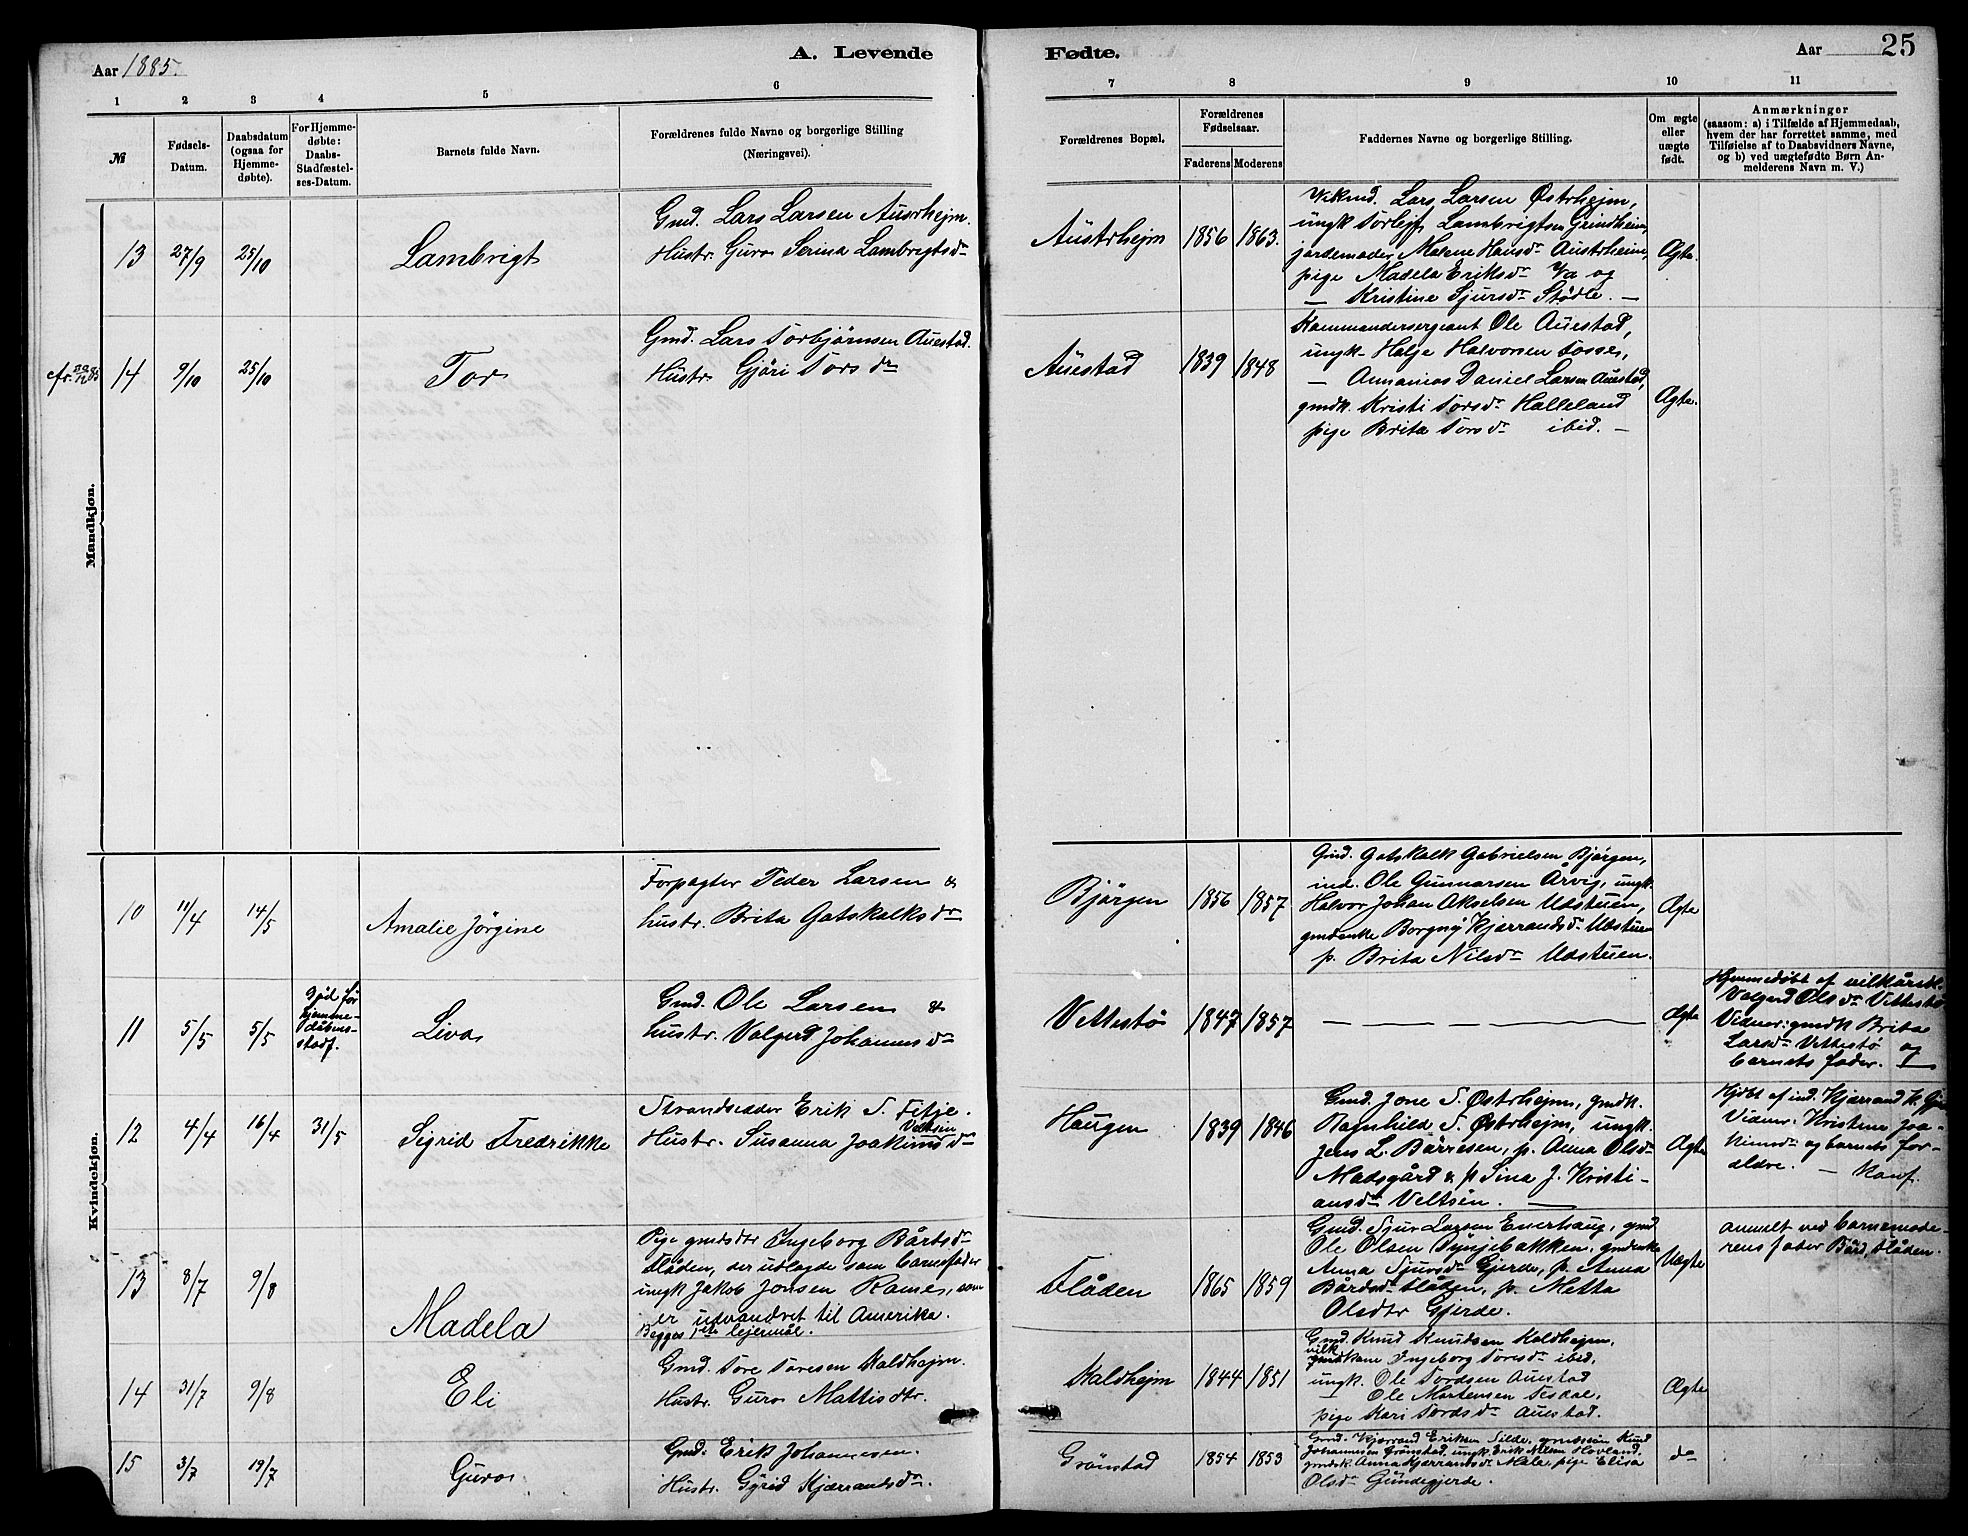 Aar 1885.
A. Levende
Fødte.
Aar
25
1 2 3 4 5 6 7 8 9 10 11
№
Fødsels-
Datum.
Daabsdatum
(ogsaa for
Hjemme-
døbte).
For Hjemme-
døbte:
Daabs-
Stadfæstel-
ses-Datum.
Barnets fulde Navn.
Forældrenes fulde Navne og borgerlige Stilling
(Næringsvei).
Forældrenes Bopæl.
Forældrenes
Fødselsaar.
Faderens Moderens
Faddernes Navne og borgerlige Stilling.
Om ægte
eller
uægte
født.
Anmærkninger
(saasom: a) i Tilfælde af Hjemmedaab,
hvem der har forrettet samme, med
Tilføielse af to Daabsvidners Navne,
og b) ved uægtefødte Børn An-
melderens Navn m. V.)
Mandkjøn.
13 27/9 25/10 Lambrigt
Gmd. Lars Larsen Austrhejm.
Hustr. Guro Serina Lambrigtsdr
Austrhejm 1856 1863.
Lars Larsen Østrhejm,
ungk Torlejf Lambrigtsen Grindheim,
jordemoder Malene Hansdr Austrheim,
pige Madela Eriksdr Va og
— Kristine Sjursdr Stødle. —
Ægte.
14 9/10 25/10 Tor
Gmd. Lars Torbjørnsen Auestad.
Hustr. Gjøri Torsdr
Auestad 1839 1848
Kommandersergeant Ole Auestad,
ungk. Helje Halvorsen Fosse,
— Annanias Daniel Larsen Auestad,
gmdk. Kristi Torsdr Halleland
pige Brita Torsdr ibid. —
Ægte.
Kvindekjøn.
10 11/4 14/5 Amalie Jørgine
Forpagter Peder Larsen &
hustr. Brita Gotskalksdr
Bjørgen 1856 1857
Gmd. Gotskalk Gabrielsen Bjørgen,
ind. Ole Gunnarsen Arvig, ungk.
Halvor Johan Akselsen Udstuen,
gmdenke Borgny Kjerrandsdr Udstuen
p. Brita Nilsdr Udstuen.
Ægte
11 5/5 5/5
hjemme-
dåbens
stadf.
Liva
Gmd. Ole Larsen &
hustr. Valgerd Johannesdr
Vettestø 1847 1857
— — — — —
Ægte
Hjemmedøbt af vilkårsk.
Valgerd Olsdr Vettestø
Vidner: gmdk Brita
Larsdr Vettestø og
barnets fader. —
12 4/4 16/4 31/5 Sigrid Fredrikke
Strandsidder Erik S. Fitje.
Hustr. Susanna Joakimsdr
Haugen 1839 1846
Gmd. Jone S. Østrhejm, gmdk.
Ragnhild S. Østrhejm, ungk.
Jens L. Børresen, p. Anna Olsdr
Madsgård & p Sina J. Kristi-
ansdr Veltsen. —
Ægte
Hjdbt af ind. Kjerrand K.
Vidner: Kristense Joa-
kimsdr og barnets for-
ældre. —
13 8/7 9/8 Madela
Pige gmdsdtr Ingeborg Bårdsdr
Flåden, der udlagde som barnefader
ungk Jakob Jonsen Ramnes, som
er udvandret til Amerika.
Begges 1ste lejermål.
Flåden 1865 1859
Gmd. Sjur Larsen Enerhaug, gmd
Ole Olsen Dynjebakken, gmdenke
Anna Sjursdr Gjerde, p. Anna
Bårdsdr Flåden, p. Metha
Olsdtr Gjerde.
Uægte
anmelt ved barnemode-
rens fader Bård Flåden.
14 31/7 9/8 Eli
Gmd. Tore Toresen Kaldhejm.
Hustr. Guro Mattisdtr.
Kaldhejm 1844 1851
Gmd. Knud Knudsen Kaldhejm.
vilk
gmdkone Ingeborg Toresdr ibid.
ungk. Ole Tordsen Auestad
— Ole Mortensen Tesdal,
pige Kari Tordsdr Auestad.
Ægte
15 3/7 19/7 Guro
Gmd. Erik Johannesen.
Hustr. Gyrid Kjærrandsdr.
Grønstad 1854 1853
Gmd. Kjerrand Eriksen Silde, gmdssøn Knud
Johannesen Grønstad, ungk. Erik Nilsen Hovland,
gmdsk. Anna Kjerransdr Mæle, pige Elisa
Olsdr Gundegjerde.
do